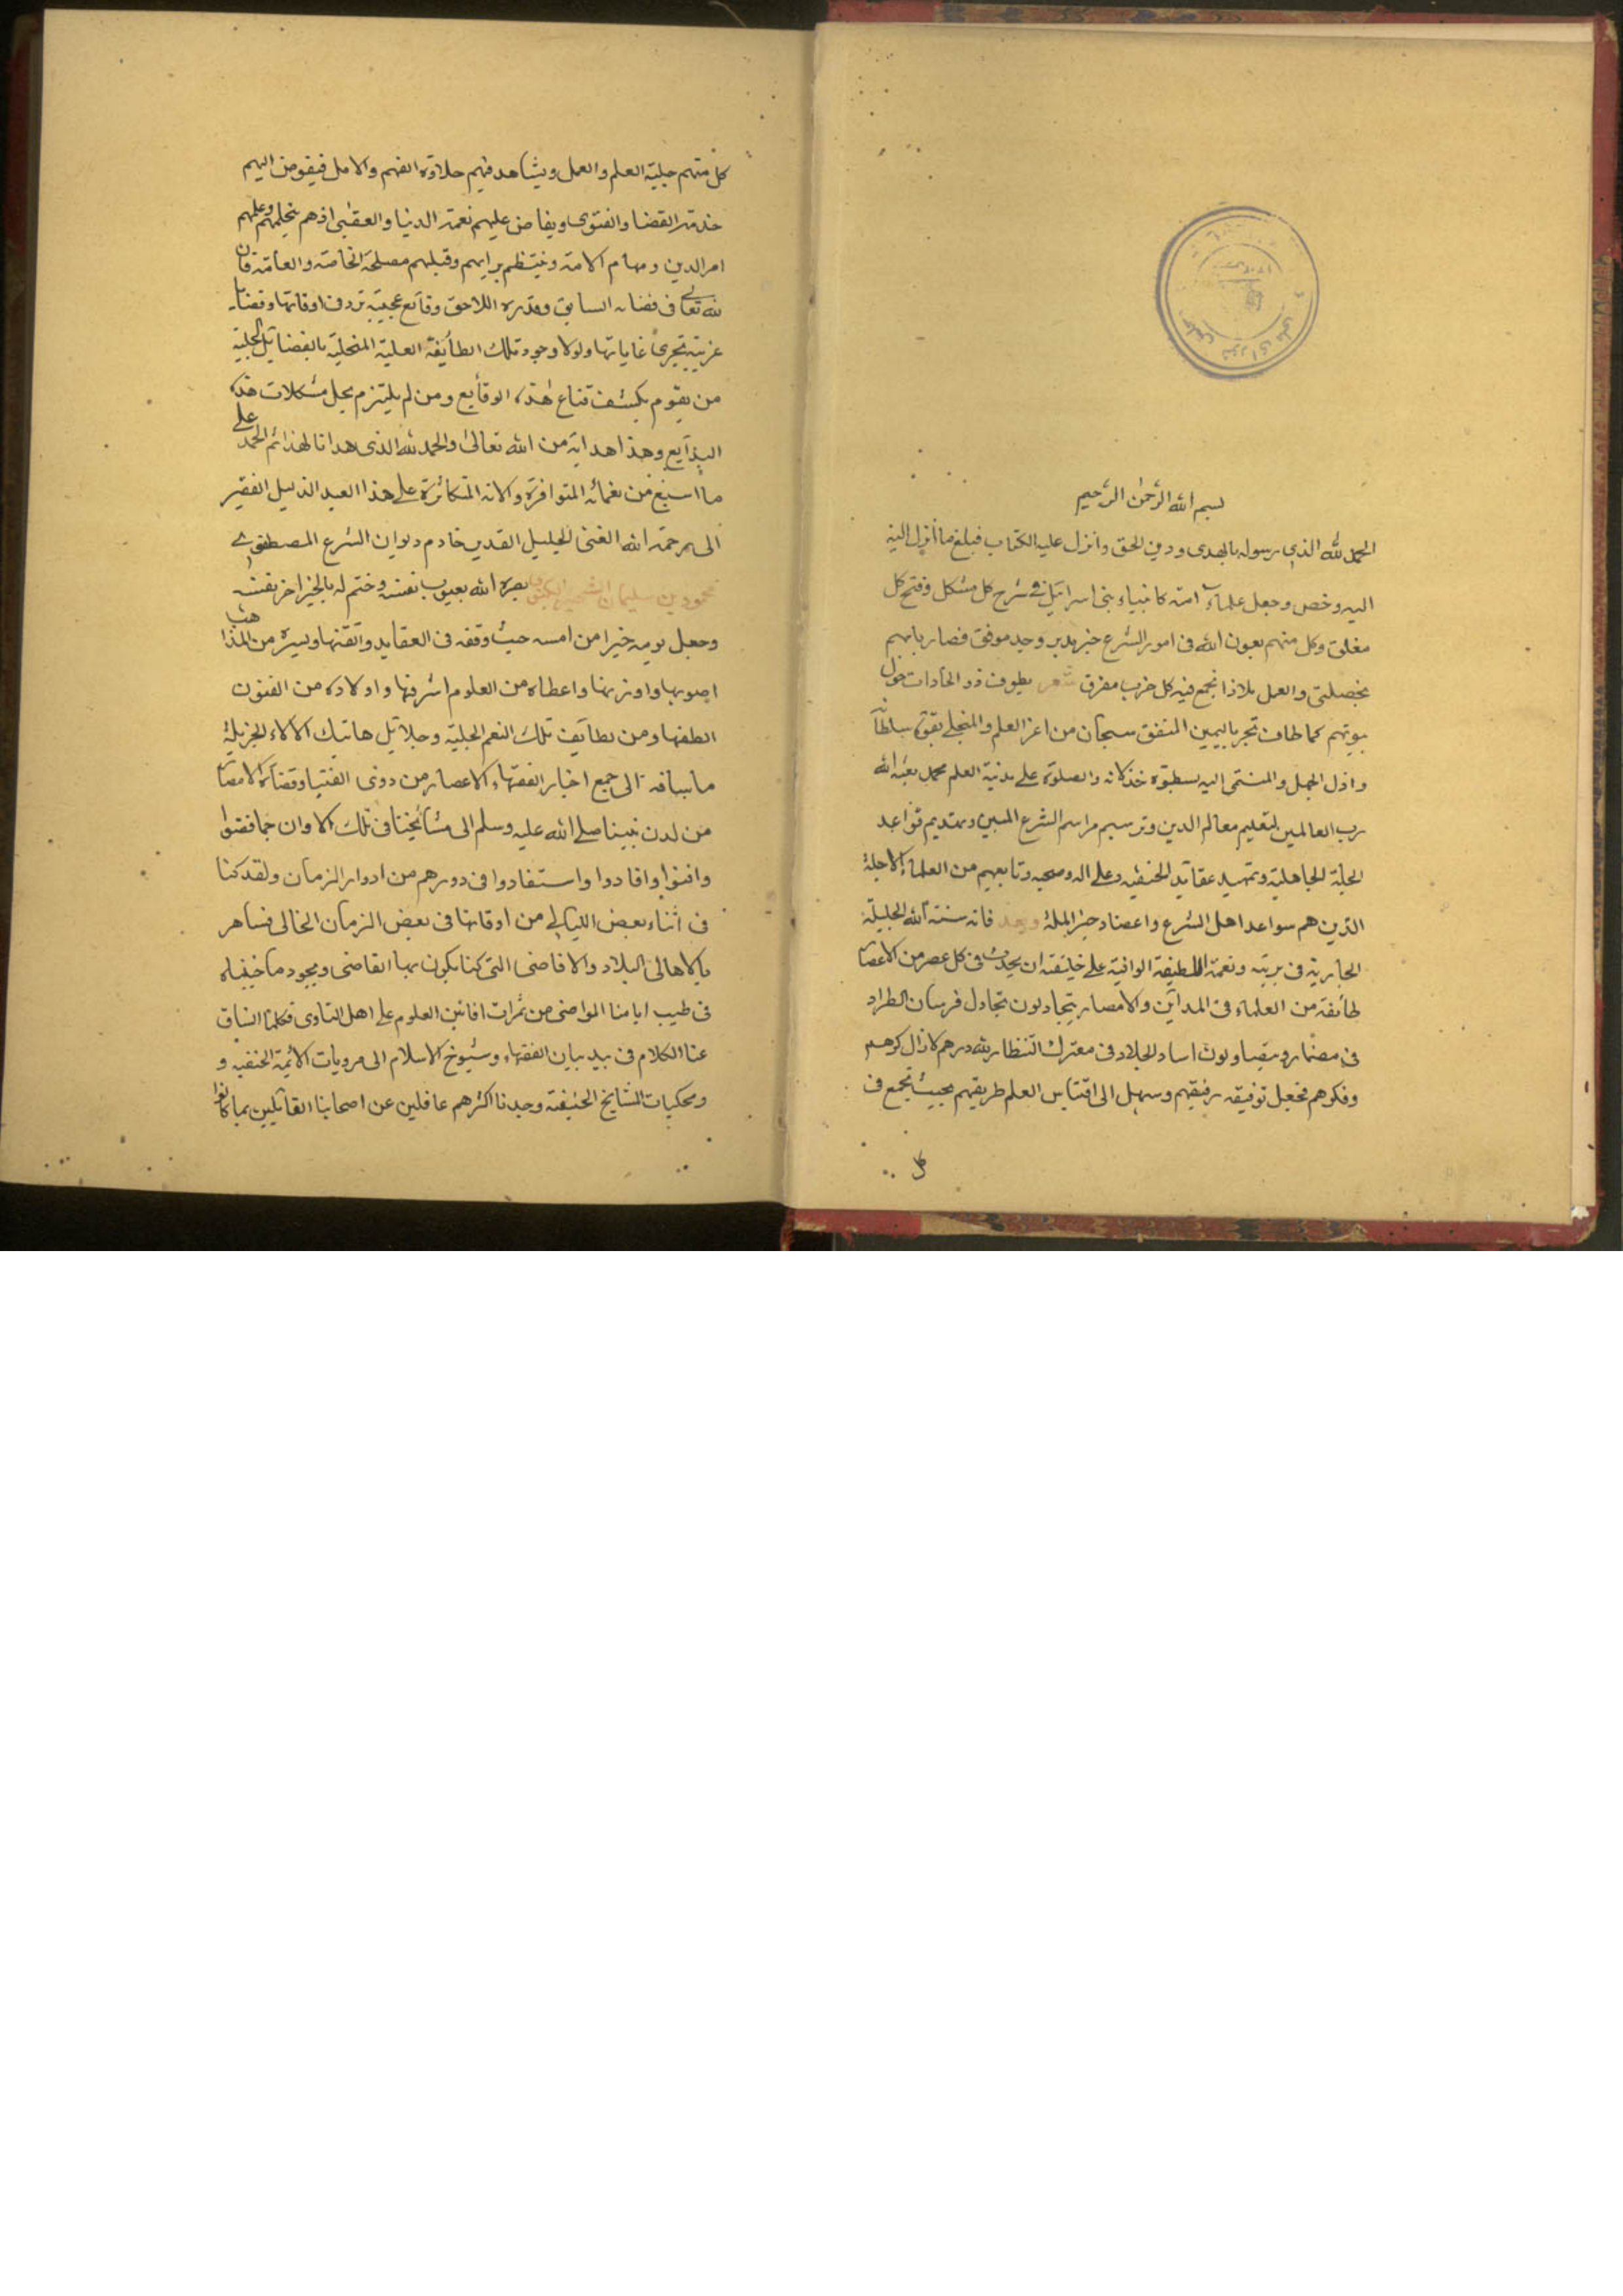 بسم الله الرحمن الرحيم
الحمد لله الذى رسوله بالهدى ودين الحق وانزل عليه الكتاب فبلغ ما أنزل اليه
اليه وخص وجعل علماء امته كانبياء بنى اسرائيل فى شرح كل مشكل وفتح كل
مغلق وكل منهم بعون الله فى امور الشرع خبر بدير وحيد موفق فصار بابهم
بخصلتى والعمل ملاذا تجمع فيه كل حزب مفرق شعر يطوف ذو الحاجات حول
بيوتهم كما طاف تجر باليمين المتفق سبحان من اعز العلم والمنجلى بقوة سلطانا
واذل الجهل والمنتمى اليه بسطوة خذلانه والصلوة على مدنية العلم محمد بعثه الله
رب العالمين لتعليم معالم الدين وترسيم مراسم الشرع المبين وتمتديم قواعد
الجلة الجاهلية وتمهيد عقايد الحنفيه وعلى اله وصحبه وتابعهم من العلماء الاجلة
الذين هم سواعد اهل الشرع واعضاد خير الملة وبعد فانه سنته الله الجليلة
الجارية فى بريته ونعمة اللطيفة الوافية على خليقته ان يحدث فى كل عصر من الاعصار
طائفة من العلماء فى المداين والامصار يتجادلون تجادل فرسان الطراد
فى مضمار ويتصاولون اساد الجلاد فى معترك التنظار لله درهم لا زال كرهم
وفكرهم فجعل توفيقه رفيقهم وسهل الى اقتباس العلم طريقهم بحيث تجمع فى
كل
كل منهم حلية العلم والعمل ويشاهد فيهم حلاوة الفهم والامل فيفوض اليهم
خدمة القضا والفتوى ويفاض عليهم نعمة الدنيا والعقبى اذ هم بحلمهم وعلمهم
امر الدين ومهام الامة وينتظم برايهم وقبلهم مصلحة الخاصة والعامة فان
لله تعالى فى قضائه السابق وقدره اللاحق وقائع عجيبة ترد فى اوقاتها وقضايا
غريبة تجرى غاياتها ولولا وجود تلك الطائفة العلية المتحلية بالفضائل الجلية
من يقوم بكشف قناع هذه الوقايع ومن لم يلتزم بحل مشكلات هذه
البدايع وهذا هداية من الله تعالى والحمد لله الذى هدانا لهذا ثم الحمد على
ما اسبغ من نعمائه المتوافرة والائه المتكاثرة على هذا العبد الذليل الفقير
الى رحمة الله الغنى الجليل القدير خادم ديوان الشرع المصطفوى
محمود بن سليمان الشهير بالكفوى بصره الله بعيوب نفسه وختم له بالخير اخر نفسه
وجعل يومه خيرا من امسه حيث وقفه فى العقايد واتقنها ويسره من المذاهب
اصوبها واوزنها واعطاه من العلوم اشرفها واولاده من الفنون
الطفها ومن لطايف تلك النعم الجلية وجلائل هاتيك الالاء الجزيلة
ما ساقه الى جمع اخبار الفقهاء الاعصار من ذوى الفتيا وقضاة الامصار
من لدن نبينا صلى الله عليه وسلم الى مشائخنا فى تلك الاوان جما قضوا
وافتوا وافادوا واستفادوا فى دورهم من ادوار الزمان ولقد كنا
فى اثناء بعض الليالى من اوقاتنا فى بعض الزمان الخالى نساهر
بالاهالى البلاد والاقاصى التى كنا نكون بها القاضى ونجود ما خبيناه
فى طيب ايامنا المواضى من ثمرات افانين العلوم على اهل النادى فكلما انساق
عنا الكلام فى بيد بيان الفقهاء وشيوخ الاسلام الى مرويات الائمة الحنفيه و
ومحكيات المشايخ الحنيفة وجدنا اكثرهم غافلين عن اصحابنا القائلين بما كانوا